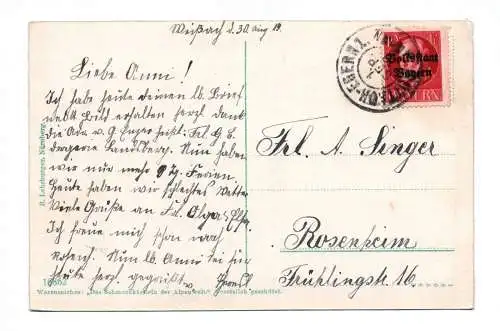 Weißach d. 30. Aug 19.
Liebe Anni!
Ich habe heute deinen lb. Brief
u. Bild erhalten herzl. dank
die Adr. v. G. heißt: Frl. G. L.
drogerie Landsberg. Nun haben
wir nur mehr 9 Tg. Ferien.
Heute haben wir schlechtes Wetter
Viele Grüße an Frl. Olga
Ich freue mich schon nach
Rosenh. Nun lb. Anni sei für
heute herzl. gegrüßt
Volksstaat
Bayern
Frl. A. Singer
Rosenheim
Frühlingstr. 16.
Nürnberg.
Warenzeichen: „Das Schmuckkästlein der Alpenwelt“. Gesetzlich geschützt.